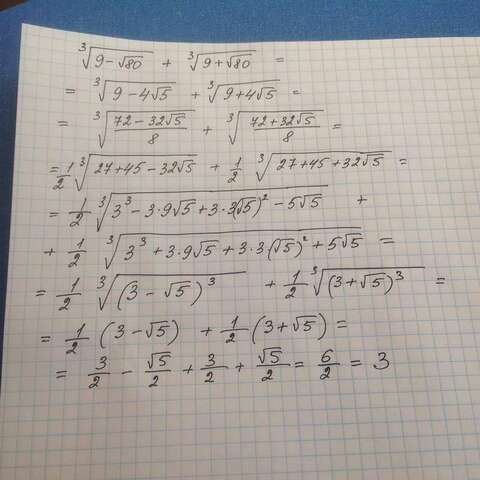 ∛(9 − √80) + ∛(9 + √80) =
= ∛(9 − 4√5) + ∛(9 + 4√5) =
= ∛((72 − 32√5)/8) + ∛((72 + 32√5)/8) =
= 1/2 ∛(27 + 45 − 32√5) + 1/2 ∛(27 + 45 + 32√5) =
= 1/2 ∛(3³ − 3·9√5 + 3·3(√5)² − 5√5) +
+ 1/2 ∛(3³ + 3·9√5 + 3·3(√5)² + 5√5) =
= 1/2 ∛((3 − √5)³) + 1/2 ∛((3 + √5)³) =
= 1/2 (3 − √5) + 1/2 (3 + √5) =
= 3/2 − √5/2 + 3/2 + √5/2 = 6/2 = 3